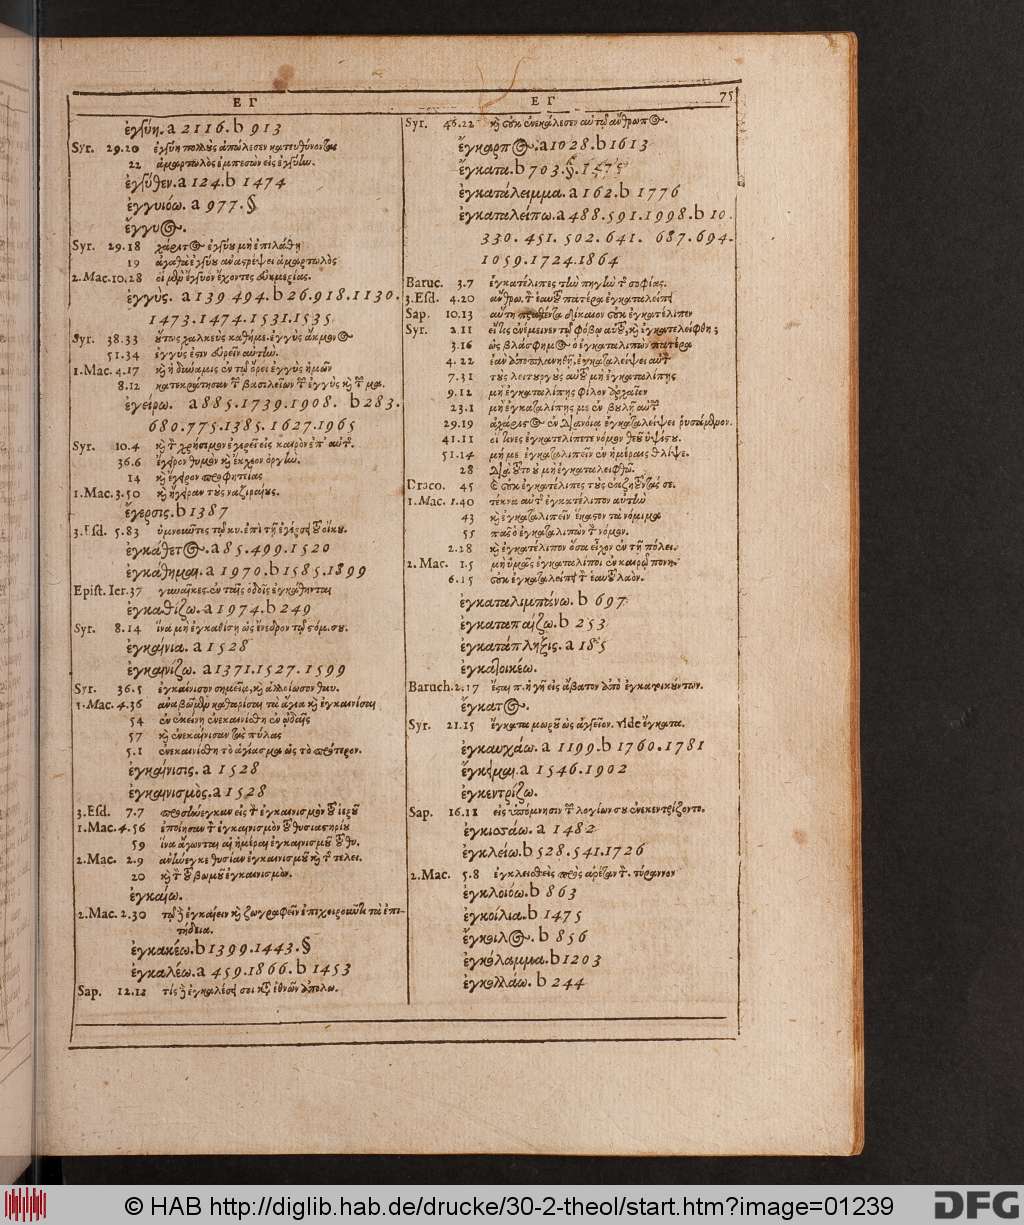 Ε Γ
ἐγγύη. a 2116. b 913
Syr. 29.20 ἐγγύη πολλοὺς ἀπώλεσεν κατευθύνοντας
22 ἁμαρτωλὸς ἐμπεσὼν εἰς ἐγγύην.
ἐγγύθεν. a 124. b 1474
ἐγγυιόω. a 977. §
ἔγγυος.
Syr. 29.18 χάριτος ἐγγύου μὴ ἐπιλάθῃ
19 ἀγαθὰ ἐγγύου ἀναστρέψει ἁμαρτωλὸς
2. Mac. 10.28 οἱ μὲν ἔγγυον ἔχοντες εὐημερίας.
ἐγγὺς. a 139 494. b 26. 918. 1130.
1473. 1474. 1531. 1535
Syr. 38.33 οὕτως χαλκεὺς καθήμε. ἐγγὺς ἄκμονος
51.34 ἐγγύς ἐστιν εὑρεῖν αὐτὴν.
1. Mac. 4.17 καὶ ἡ δύναμις ἐν τῷ ὄρει ἐγγὺς ἡμῶν
8.12 κατεκράτησαν τῶν βασιλείων τῶν ἐγγὺς καὶ τῶν μα.
ἐγείρω. a 885. 1739. 1908. b 283.
680. 775. 1385. 1627. 1965
Syr. 10.4 καὶ τὸν χρήσιμον ἐγερεῖ εἰς καιρὸν ἐπ᾽ αὐτ.
36.6 ἔγειρον θυμὸν καὶ ἔκχεον ὀργὴν.
14 καὶ ἔγειρον προφητείας
1. Mac. 3.50 καὶ ἤγειραν τοὺς ναζιραίους.
ἔγερσις. b 1387
3. Esd. 5.83 ὑμνοῦντες τῷ κυ. ἐπὶ τῇ ἐγέρσει τοῦ οἴκου.
ἐγκάθετος. a 85. 499. 1520
ἐγκάθημαι. a 1970. b 1585. 1899
Epist. Ier. 37 γυναῖκες. ἐν ταῖς ὁδοῖς ἐγκάθηνται
ἐγκαθίζω. a 1974. b 249
Syr. 8.14 ἵνα μὴ ἐγκαθίσῃ ὡς ἔνεδρον τῷ στόμ. σου.
ἐγκαίνια. a 1528
ἐγκαινίζω. a 1371. 1527. 1599
Syr. 36.5 ἐγκαίνισον σημεῖα, καὶ ἀλλοίωσον θαυ.
1. Mac. 4.36 ἀναβῶμεν καθαρίσαι τὰ ἅγια καὶ ἐγκαινίσαι
54 ἐν ἐκείνῃ ἐνεκαινίσθη ἐν ᾠδαῖς
57 καὶ ἐνεκαίνισαν τὰς πύλας
5.1 ἐνεκαινίσθη τὸ ἁγίασμα ὡς τὸ πρότερον.
ἐγκαίνισις. a 1528
ἐγκαινισμὸς. a 1528
3. Esd. 7.7 προσήνεγκαν εἰς τὸν ἐγκαινισμὸν τοῦ ἱεροῦ
1. Mac. 4.56 ἐποίησαν τὸν ἐγκαινισμὸν τοῦ θυσιαστηρίου
59 ἵνα ἄγωνται αἱ ἡμέραι ἐγκαινισμοῦ τοῦ θυ.
2. Mac. 2.9 ἀνήνεγκε θυσίαν ἐγκαινισμοῦ καὶ τῆς τελει.
20 καὶ τὸν τοῦ βωμοῦ ἐγκαινισμὸν.
ἐγκαίω.
2. Mac. 2.30 τῷ δὲ ἐγκαίειν καὶ ζωγραφεῖν ἐπιχειροῦντι τὰ ἐπι-
τήδεια.
ἐγκακέω. b 1399. 1443. §
ἐγκαλέω. a 459. 1866. b 1453
Sap. 12.12 τίς δὲ ἐγκαλέσει σοι κατὰ ἐθνῶν ἀπολω.
Ε Γ
75
Syr. 46.22 καὶ οὐκ ἐνεκάλεσεν αὐτῷ ἄνθρωπος.
ἔγκαρπος. a 1028. b 1613
ἔγκατα. b 703. §. 1475
ἐγκατάλειμμα. a 162. b 1776
ἐγκαταλείπω. a 488. 591. 1998. b 10.
330. 451. 502. 641. 687. 694.
1059. 1724. 1864
Baruc. 3.7 ἐγκατέλιπες τὴν πηγὴν τῆς σοφίας.
3. Esd. 4.20 ἄνθρω. τὸν ἑαυτοῦ πατέρα ἐγκαταλείπει
Sap. 10.13 αὕτη πραθέντα δίκαιον οὐκ ἐγκατέλιπεν
Syr. 2.11 εἰ τίς ἐνέμεινεν τῷ φόβῳ αὐτοῦ, καὶ ἐγκατελείφθη;
3.16 ὡς βλάσφημος ὁ ἐγκαταλιπὼν πατέρα
4.22 ἐὰν ἀποπλανηθῇ, ἐγκαταλείψει αὐτὸν
7.31 τοὺς λειτουργοὺς αὐτοῦ μὴ ἐγκαταλίπῃς
9.12 μὴ ἐγκαταλίπῃς φίλον ἀρχαῖον
23.1 μὴ ἐγκαταλίπῃς με ἐν βουλῇ αὐτῶν
29.19 ἀχάριστος ἐν διανοίᾳ ἐγκαταλείψει ῥυσάμενον.
41.11 οἵ τινες ἐγκατελίπετε νόμον θεοῦ ὑψίστου.
51.14 μή με ἐγκαταλιπεῖν ἐν ἡμέραις θλίψε.
28 διὰ τοῦτο οὐ μὴ ἐγκαταλειφθῶ.
Draco. 45 οὐκ ἐγκατέλιπες τοὺς ἐκζητοῦντάς σε.
1. Mac. 1.40 τέκνα αὐτῆς ἐγκατέλιπον αὐτὴν
43 καὶ ἐγκαταλιπεῖν ἕκαστον τὰ νόμιμα
55 πᾶς ὁ ἐγκαταλιπὼν τὸν νόμον.
2.28 καὶ ἐγκατέλιπον ὅσα εἶχον ἐν τῇ πόλει.
2. Mac. 1.5 μὴ ὑμᾶς ἐγκαταλίποι ἐν καιρῷ πονη.
6.15 οὐκ ἐγκαταλείπει τὸν ἑαυτοῦ λαὸν.
ἐγκαταλιμπάνω. b 697
ἐγκαταπαίζω. b 253
ἐγκατάπληξις. a 185
ἐγκατοικέω.
Baruch. 2.17 ἔσται π. ἡ γῆ εἰς ἄβατον ἀπὸ ἐγκατοικούντων.
ἔγκατος.
Syr. 21.15 ἔγκατα μωροῦ ὡς ἀγγεῖον. vide ἔγκατα.
ἐγκαυχάω. a 1199. b 1760. 1781
ἔγκειμαι. a 1546. 1902
ἐγκεντρίζω.
Sap. 16.11 εἰς ὑπόμνησιν τῶν λογίων σου ἐνεκεντρίζοντο.
ἐγκισσάω. a 1482
ἐγκλείω. b 528. 541. 1726
2. Mac. 5.8 ἐγκλεισθεὶς πρὸς ἀρέταν τὸν. τύραννον
ἐγκλοιόω. b 863
ἐγκοίλια. b 1475
ἔγκοιλος. b 856
ἐγκόλαμμα. b 1203
ἐγκολλάω. b 244
© HAB http://diglib.hab.de/drucke/30-2-theol/start.htm?image=01239
DFG